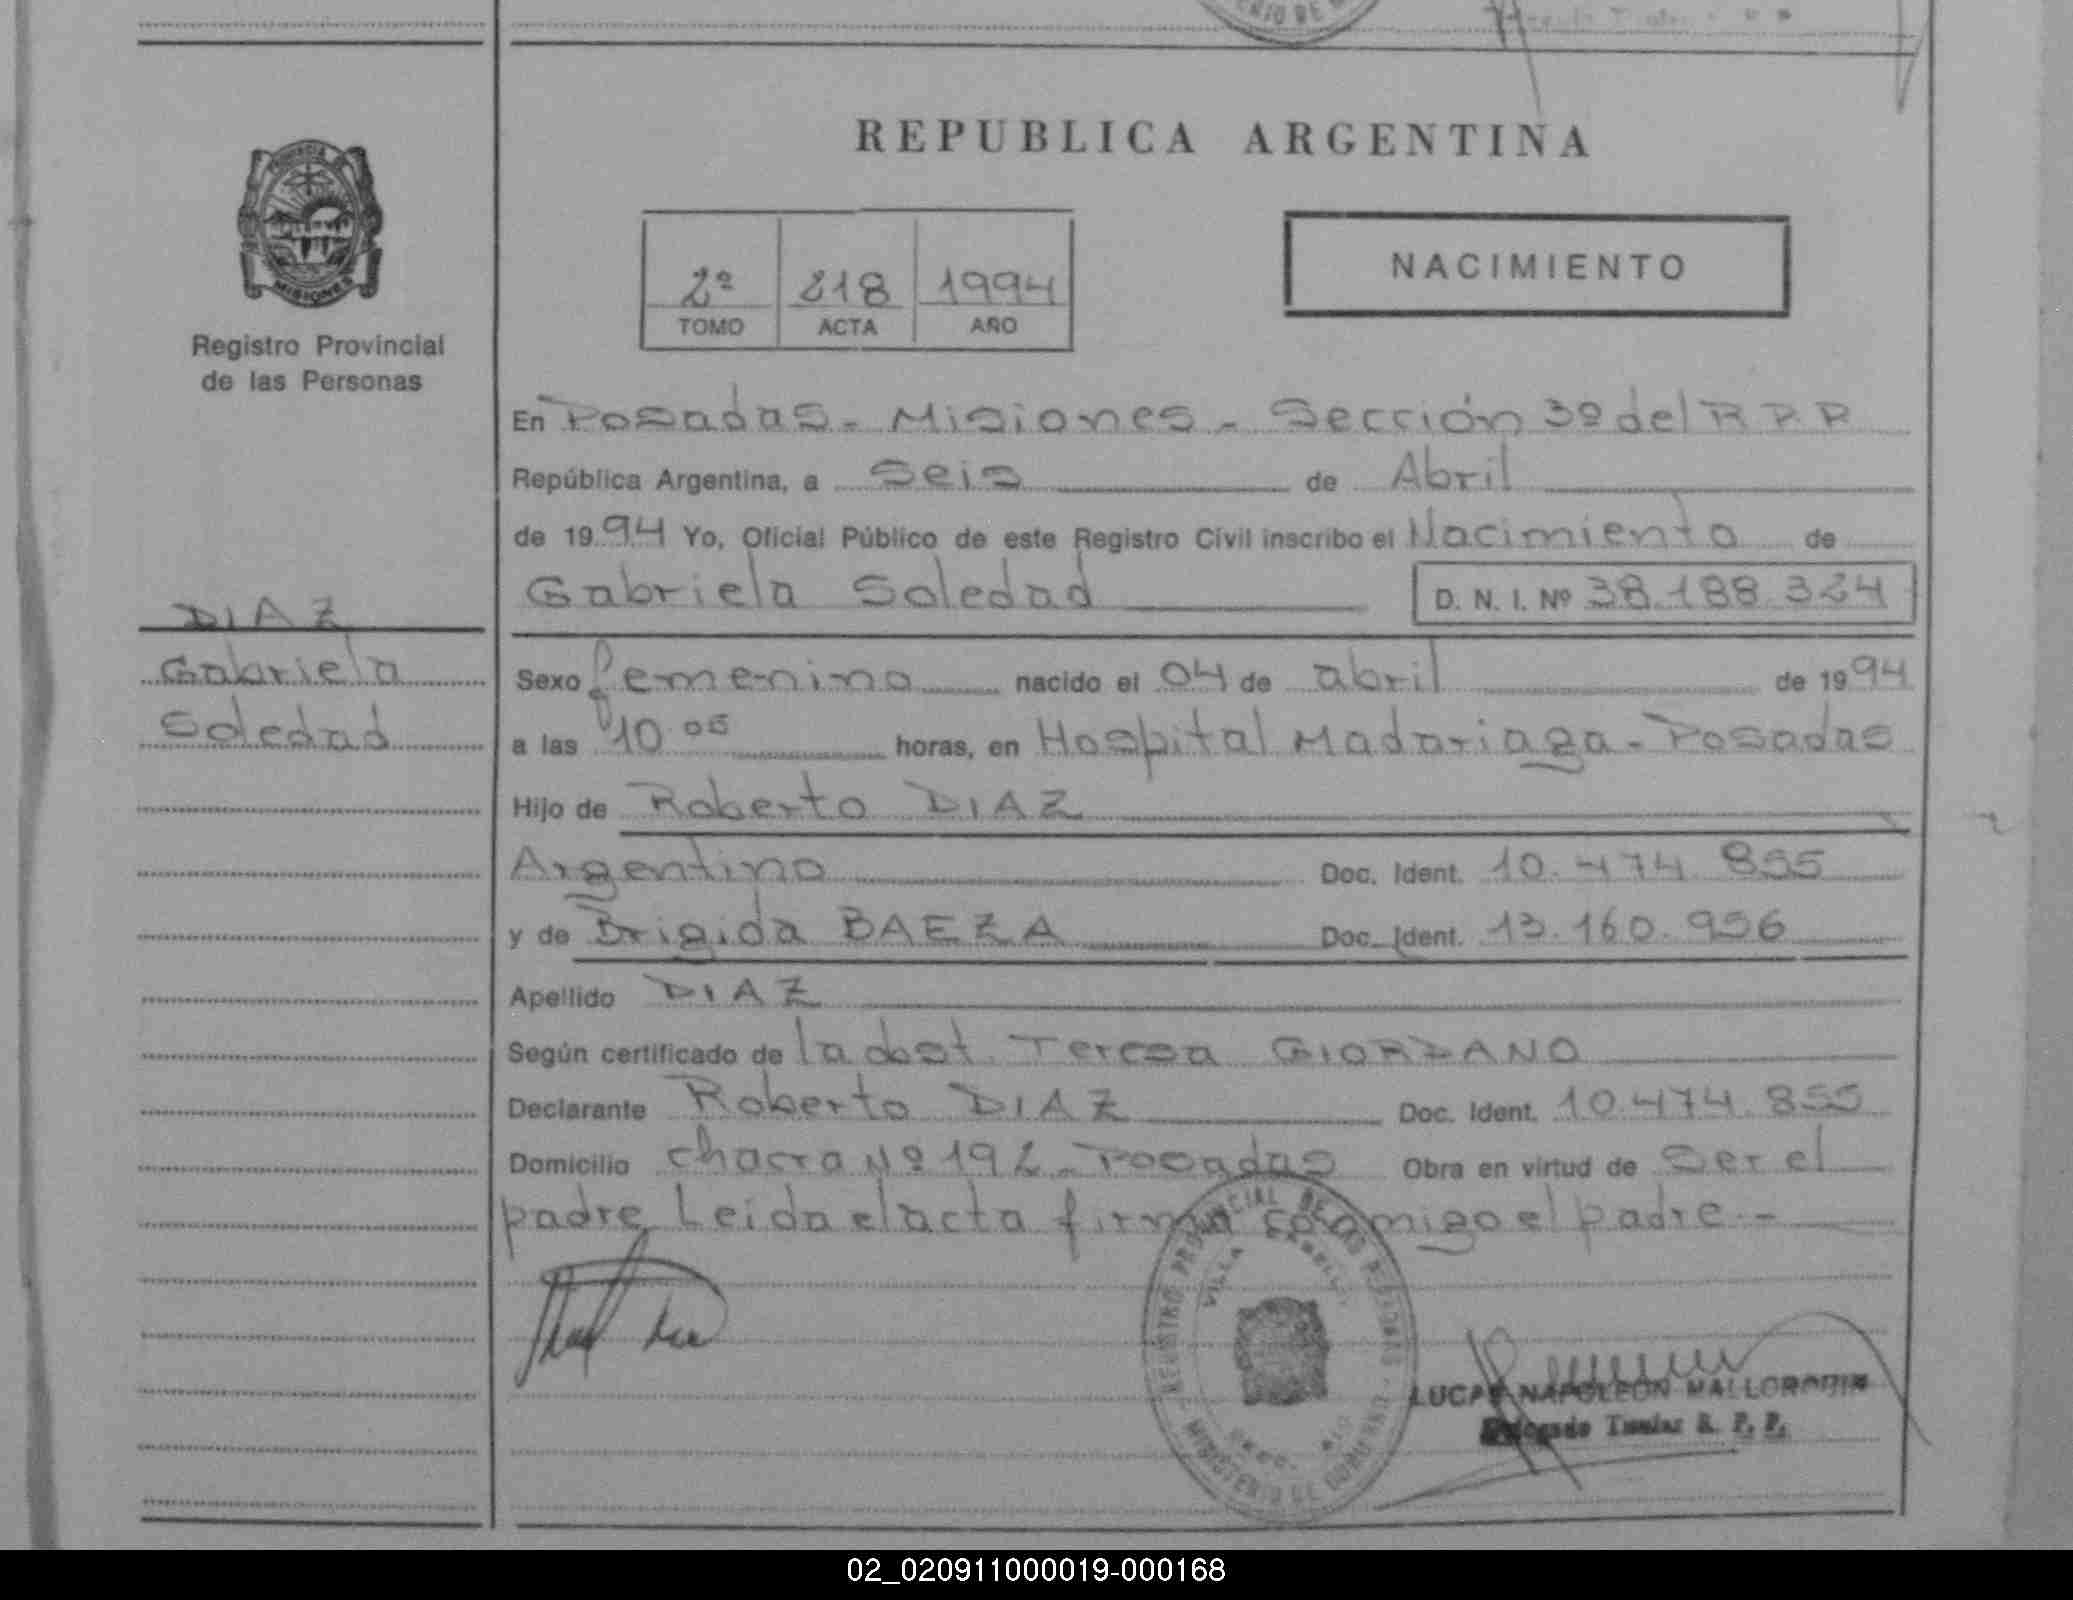 REPUBLICA ARGENTINA
PROVINCIA
MISIONES
Registro Provincial
de las Personas
2º 218 1994
TOMO ACTA AÑO
NACIMIENTO
En Posadas - Misiones - Sección 3º del R.P.P.
República Argentina, a Seis de Abril
de 1994 Yo, Oficial Público de este Registro Civil inscribo el Nacimiento de
Gabriela Soledad D. N. I. Nº 38.188.324
DIAZ
Gabriela
Soledad
Sexo femenino nacido el 04 de abril de 1994
a las 10.05 horas, en Hospital Madariaga - Posadas
Hijo de Roberto DIAZ
Argentino Doc. Ident. 10.474.855
y de Brigida BAEZA Doc. Ident. 13.160.956
Apellido DIAZ
Según certificado de la obst. Teresa GIORDANO
Declarante Roberto DIAZ Doc. Ident. 10.474.855
Domicilio chacra Nº 192 - Posadas Obra en virtud de Ser el
padre Leida el acta firma conmigo el padre -
REGISTRO PROVINCIAL DE LAS PERSONAS - MINISTERIO DE GOBIERNO -
VILLA
LUCAS NAPOLEON
Delegado Titular R. P. P.
02_020911000019-000168